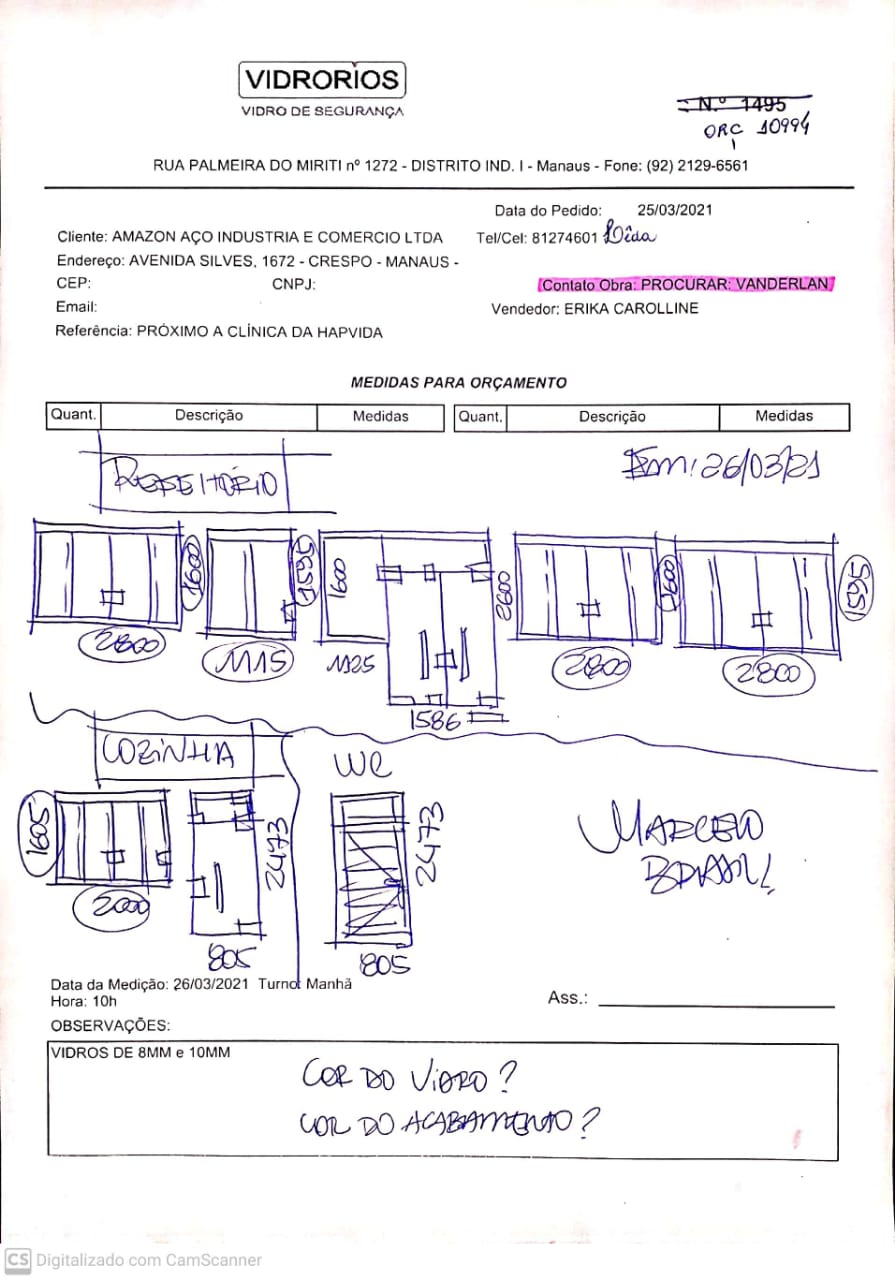 VIDRORIOS
VIDRO DE SEGURANÇA
N.º 1495
ORC 10994
RUA PALMEIRA DO MIRITI nº 1272 - DISTRITO IND. I - Manaus - Fone: (92) 2129-6561
Data do Pedido: 25/03/2021
Cliente: AMAZON AÇO INDUSTRIA E COMERCIO LTDA Tel/Cel: 81274601 Lêda
Endereço: AVENIDA SILVES, 1672 - CRESPO - MANAUS -
CEP: CNPJ: Contato Obra: PROCURAR: VANDERLAN
Email: Vendedor: ERIKA CAROLLINE
Referência: PRÓXIMO A CLÍNICA DA HAPVIDA
MEDIDAS PARA ORÇAMENTO
Quant. Descrição Medidas Quant. Descrição Medidas
REFEITÓRIO
Em: 26/03/21
1600 1595 1600 2600 1600 1595
2800 1115 1125 2800 2800
1586
COZINHA WC
1605 2473 2473
2000
805 805
MARCELO
BRASIL
Data da Medição: 26/03/2021 Turno: Manhã
Hora: 10h
Ass.:
OBSERVAÇÕES:
VIDROS DE 8MM e 10MM
COR DO VIDRO?
COR DO ACABAMENTO?
CS Digitalizado com CamScanner